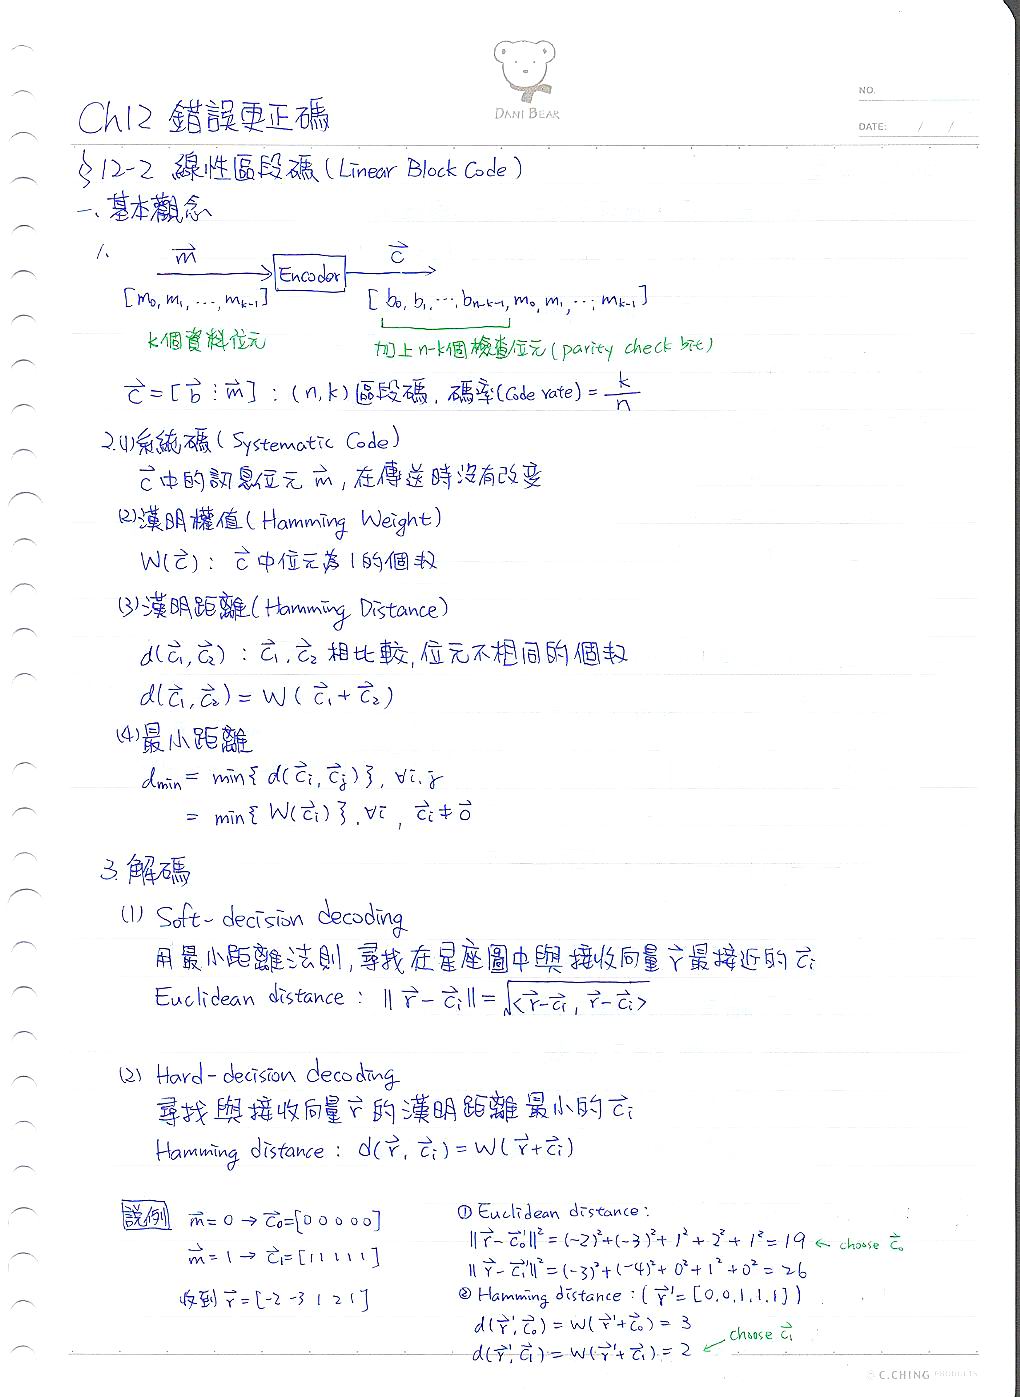 DANI BEAR
NO.
DATE: / /
Ch12 錯誤更正碼
§12-2 線性區段碼(Linear Block Code)
一、基本觀念
1.
m⃗ Encoder c⃗
[m₀, m₁, ..., mₖ₋₁] [b₀, b₁, ..., bₙ₋ₖ₋₁, m₀, m₁, ..., mₖ₋₁]
k個資料位元 加上n-k個檢查位元(parity check bit)
c⃗ = [b⃗ ⋮ m⃗] : (n, k)區段碼, 碼率(Code rate) = k/n
2.(1)系統碼(Systematic Code)
c⃗中的訊息位元m⃗, 在傳送時沒有改变
(2)漢明權值(Hamming Weight)
W(c⃗) : c⃗中位元為1的個数
(3)漢明距離(Hamming Distance)
d(c⃗₁, c⃗₂) : c⃗₁, c⃗₂相比較, 位元不相同的個数
d(c⃗₁, c⃗₂) = W(c⃗₁+c⃗₂)
(4)最小距離
dmin = min{d(c⃗ᵢ, c⃗ⱼ)}, ∀i,j
= min{W(c⃗ᵢ)}, ∀i, c⃗ᵢ≠0⃗
3.解碼
(1) Soft-decision decoding
用最小距離法則, 尋找在星座圖中與接收向量r⃗最接近的c⃗ᵢ
Euclidean distance : ||r⃗-c⃗ᵢ|| = √<r⃗-c⃗ᵢ, r⃗-c⃗ᵢ>
(2) Hard-decision decoding
尋找與接收向量r⃗的漢明距離最小的c⃗ᵢ
Hamming distance : d(r⃗, c⃗ᵢ) = W(r⃗+c⃗ᵢ)
說例 m⃗=0 → c⃗₀=[0 0 0 0 0]
m⃗=1 → c⃗₁=[1 1 1 1 1]
收到r⃗=[-2 -3 1 2 1]
① Euclidean distance:
||r⃗-c⃗₀||² = (-2)²+(-3)²+1²+2²+1² = 19 ← choose c⃗₀
||r⃗-c⃗₁||² = (-3)²+(-4)²+0²+1²+0² = 26
② Hamming distance : (r⃗'=[0,0,1,1,1])
d(r⃗', c⃗₀) = W(r⃗'+c⃗₀) = 3
d(r⃗', c⃗₁) = W(r⃗'+c⃗₁) = 2 ← choose c⃗₁
C.CHING PRODUCTS